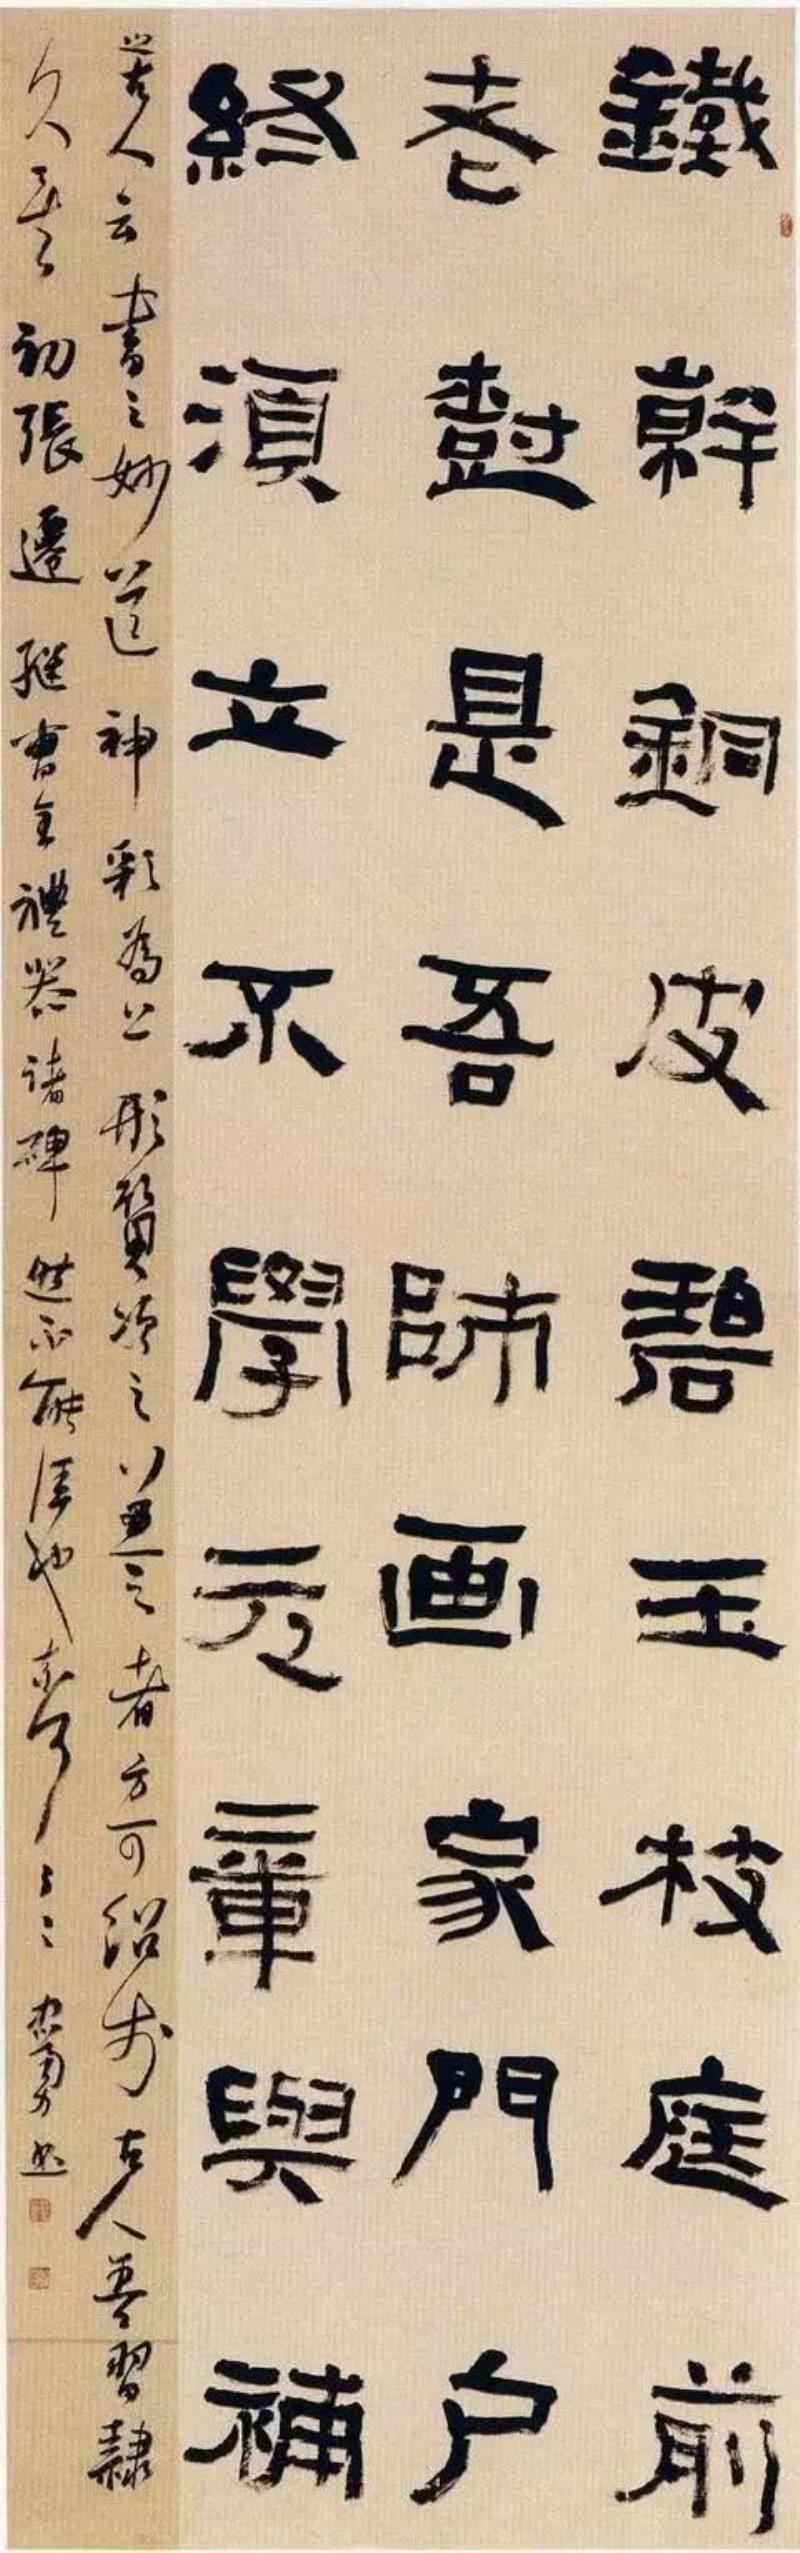 鐵幹銅皮碧玉枝庭前
老樹是吾師画家門户
終須立不學元章與補
古人云書之妙道神彩為上形質次之兼之者方可紹於古人吾習隸
久矣初張遷繼曹全禮器諸碑然不能也奈何勇書